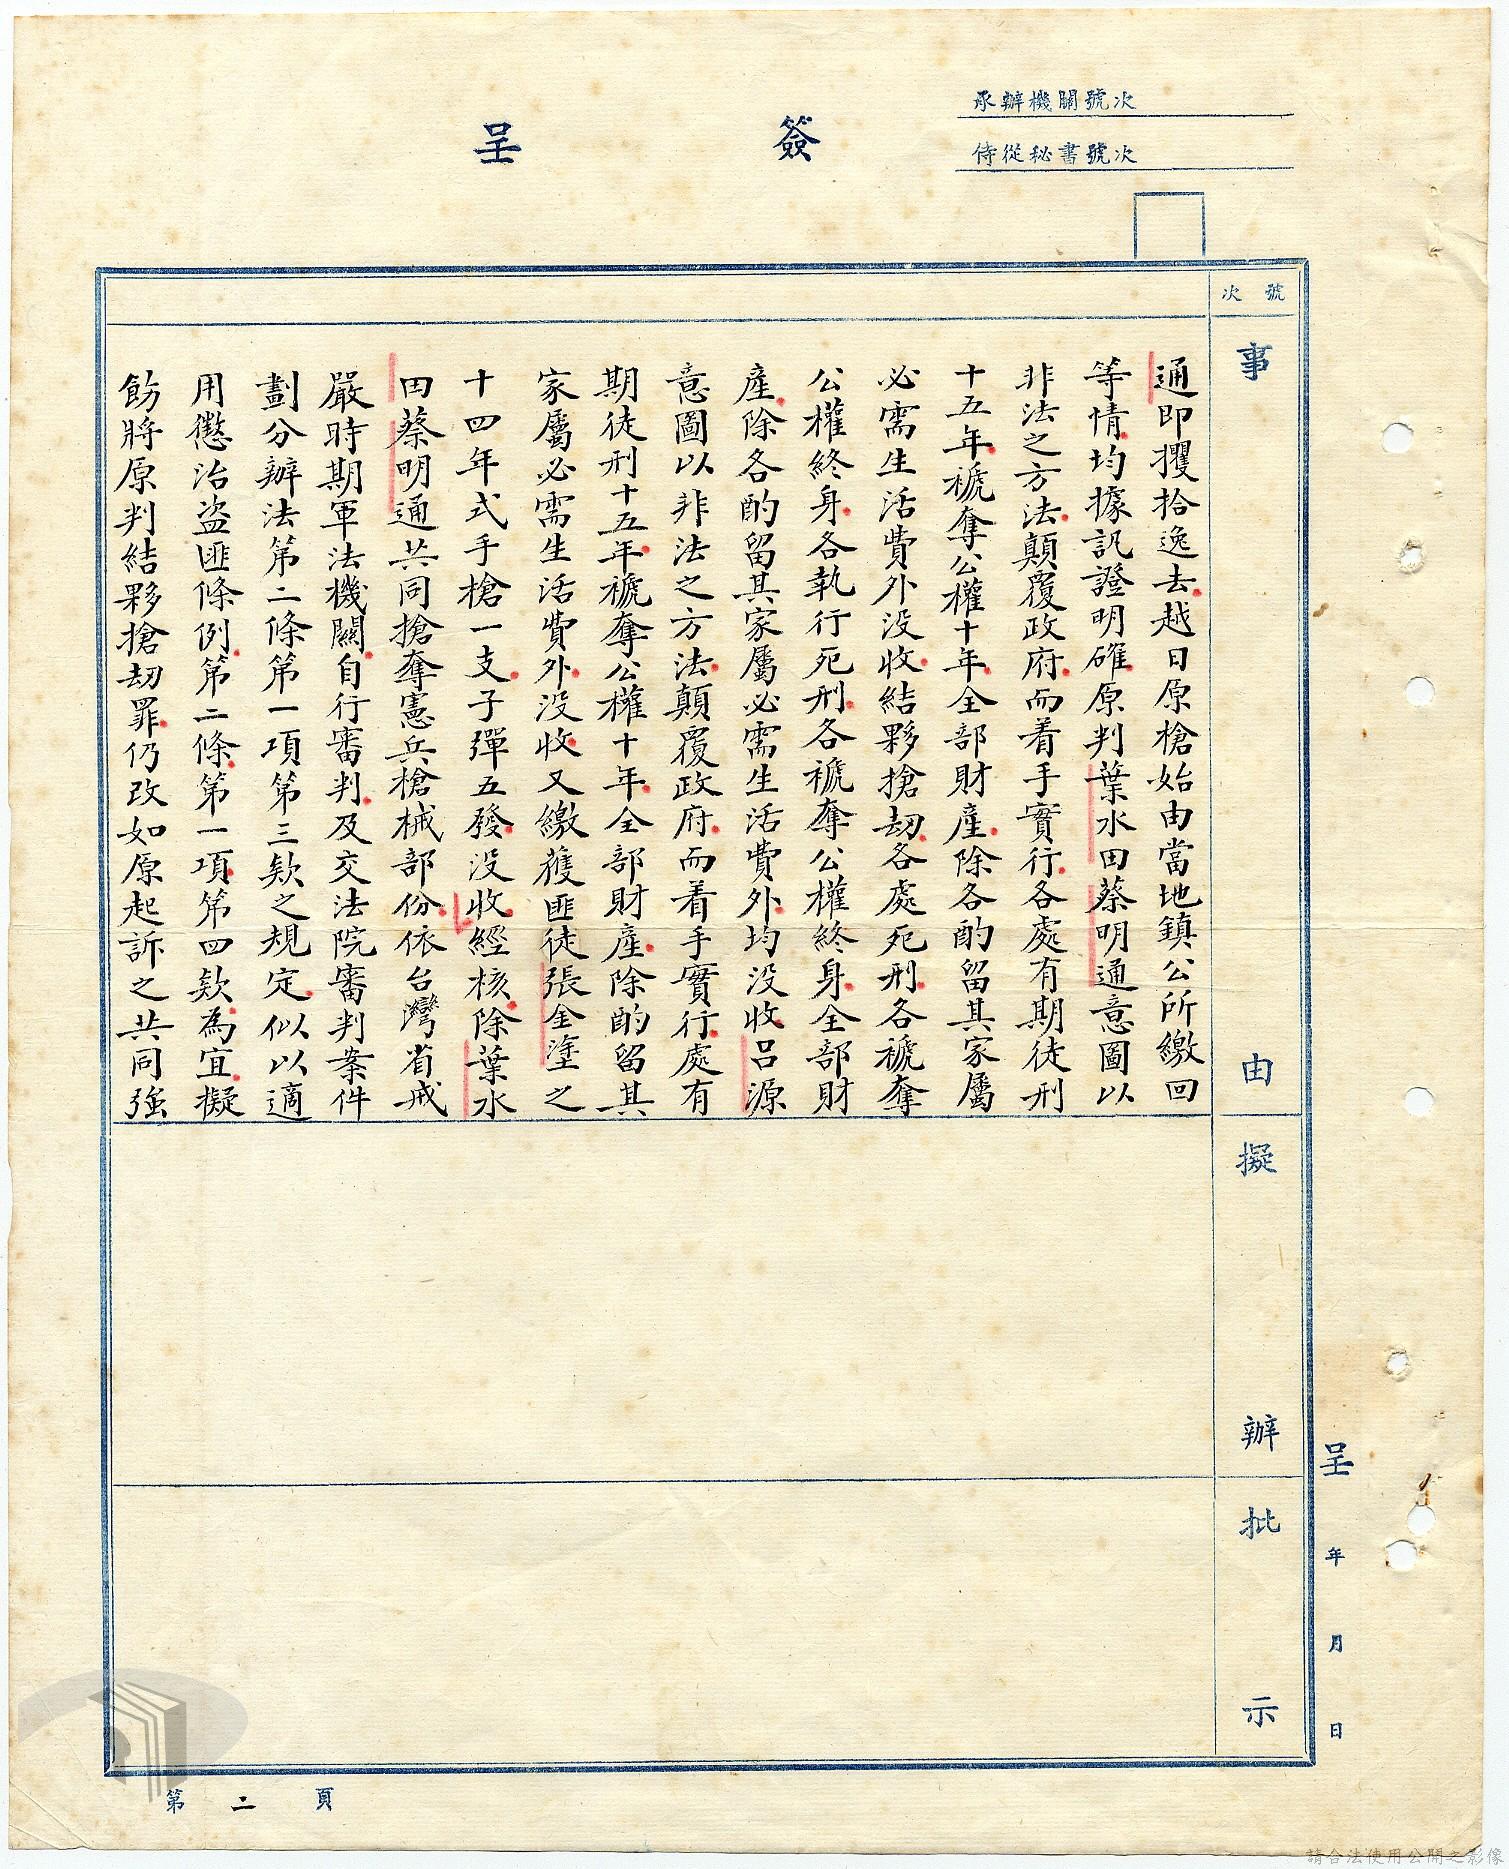 簽呈
承辦機關號次
侍從秘書號次
號次
事由
通即攫拾逸去越日原槍始由當地鎮公所繳回
等情均據訊證明確原判葉水田蔡明通意圖以
非法之方法顛覆政府而着手實行各處有期徒刑
十五年褫奪公權十年全部財產除各酌留其家屬
必需生活費外沒收結夥搶劫各處死刑各褫奪
公權終身各執行死刑各褫奪公權終身全部財
產除各酌留其家屬必需生活費外均沒收呂源
意圖以非法之方法顛覆政府而着手實行處有
期徒刑十五年褫奪公權十年全部財產除酌留其
家屬必需生活費外沒收又繳獲匪徒張金塗之
十四年式手槍一支子彈五發沒收經核除葉水
田蔡明通共同搶奪憲兵槍械部份依台灣省戒
嚴時期軍法機關自行審判及交法院審判案件
劃分辦法第二條第一項第三款之規定似以適
用懲治盜匪條例第二條第一項第四款為宜擬
飭將原判結夥搶劫罪仍改如原起訴之共同強
擬辦
批示
呈 年 月 日
第二頁
請合法使用公開之影像